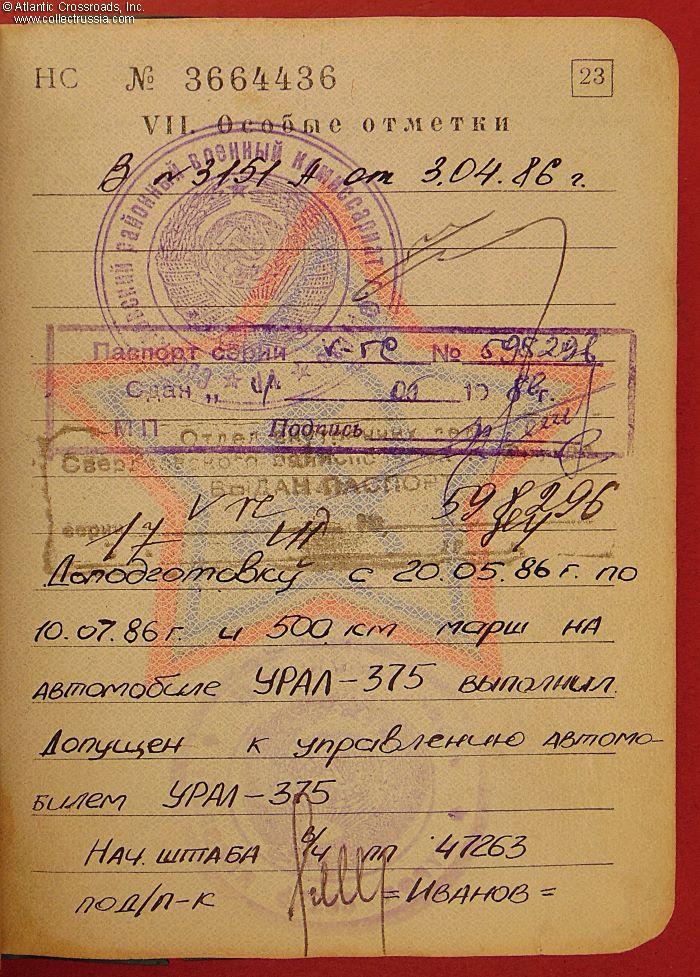 © Atlantic Crossroads, Inc.
www.collectrussia.com
НС № 3664436 23
VII. Особые отметки
районный военный комиссариат
3151 А от 3.04.86 г.
Паспорт серии № 598296
Сдан „ 19 г.
МП Подпись
Отдел
Свердловского
ВЫДАН ПАСПОРТ
598296
серии
Доподготовку с 20.05.86 г. по
10.07.86 г. и 500 км марш на
автомобиле УРАЛ-375 выполнил.
Допущен к управлению автомо-
билем УРАЛ-375
Нач. штаба в/ч пп 47263
под/п-к =Иванов=